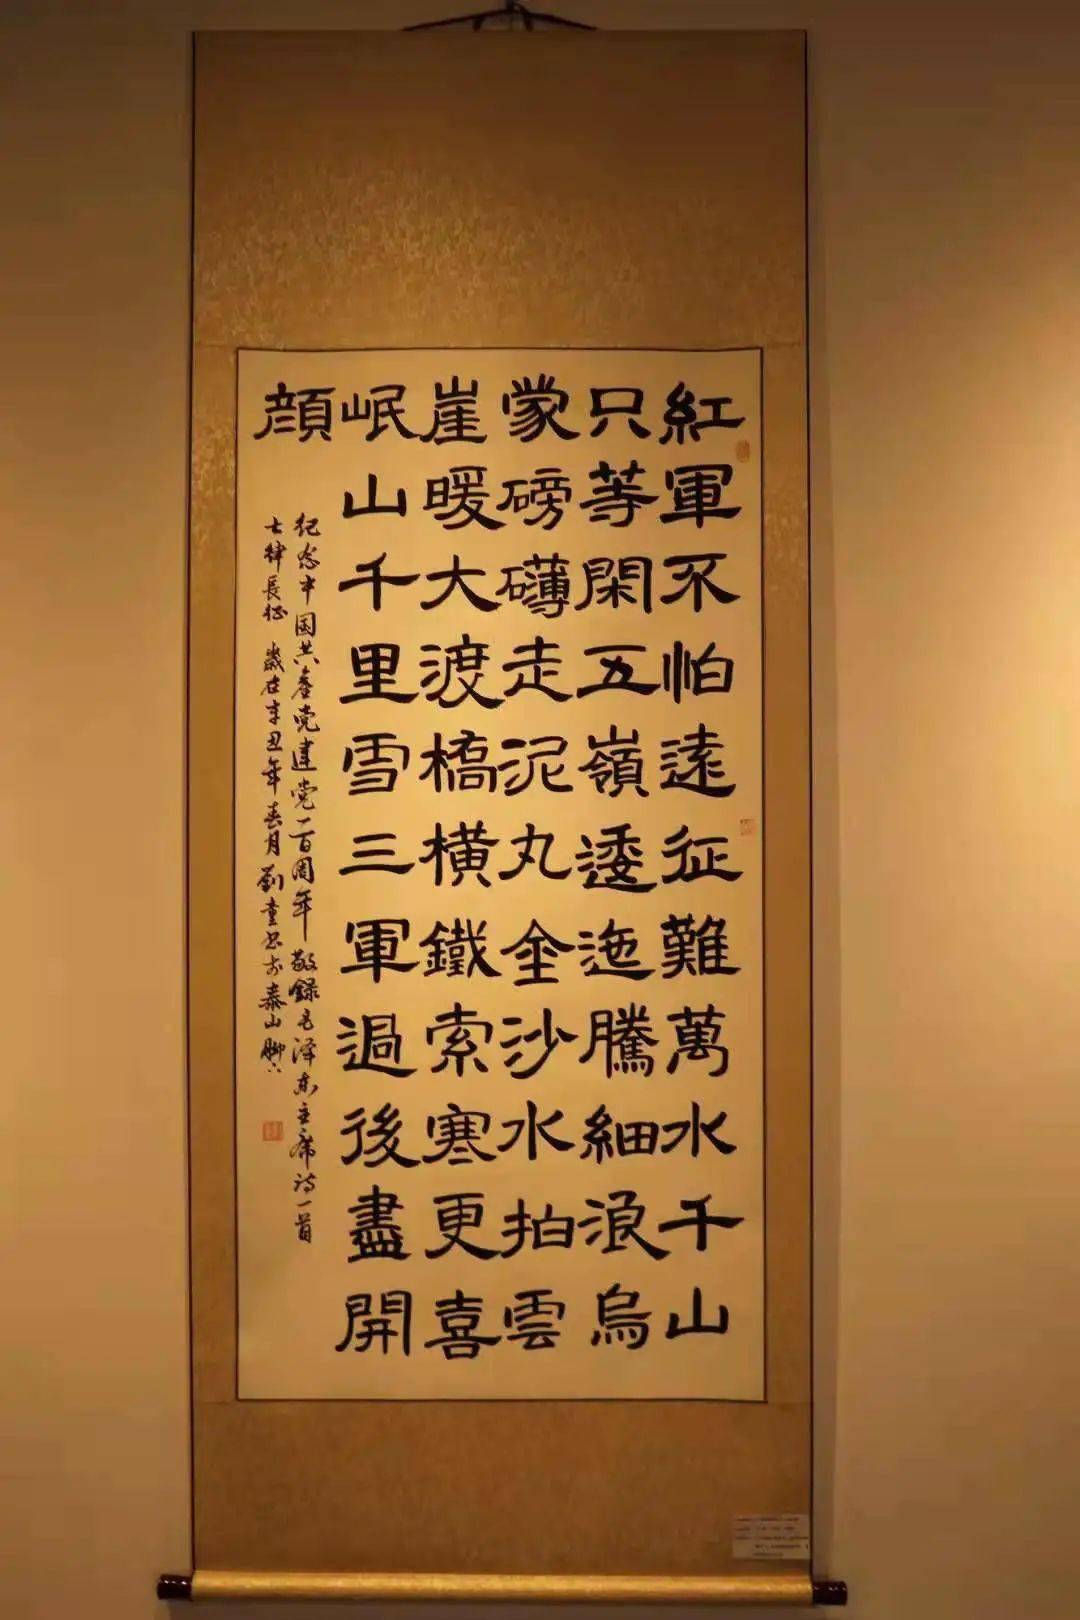 紅軍不怕遠征難萬水千山
只等閑五嶺逶迤騰細浪烏
蒙磅礴走泥丸金沙水拍雲
崖暖大渡橋橫鐵索寒更喜
岷山千里雪三軍過後盡開
顏
紀念中国共產党建党一百周年敬録毛泽东主席诗一首
七律長征 歲在辛丑年春月劉童书於泰山腳下